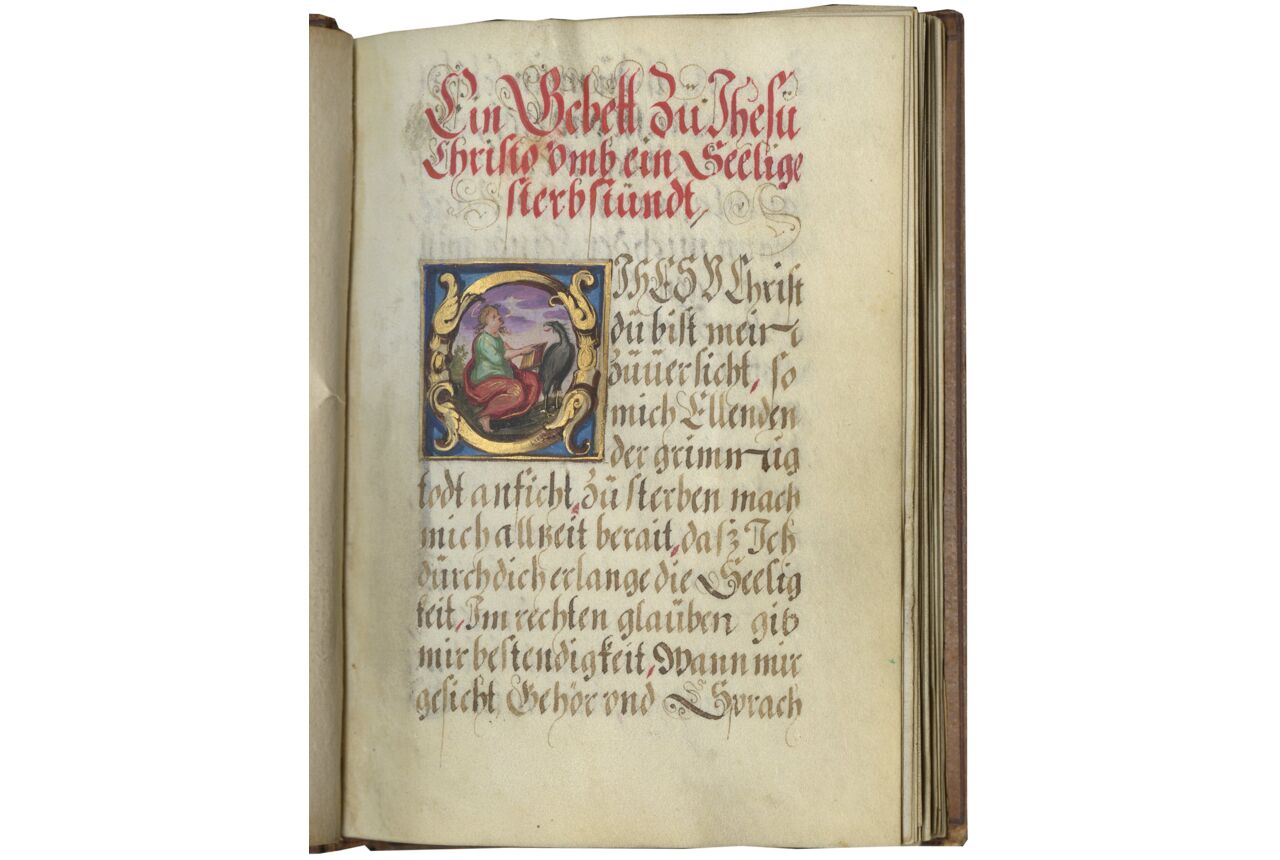 Ein Gebett Zu Jhesu
Christo vmb ein Seelige
sterbstündt
O JHESV Christ
dü bist mein
züüersicht, so
mich Ellenden
der grimmig
todt anficht, Zü sterben mach
mich allzeit berait, dasz Ich
dürch dich erlange die Seelig
keit, Im rechten glaüben gib
mir bestendigkeit, Wann mir
gesicht Gehör vnd Sprach